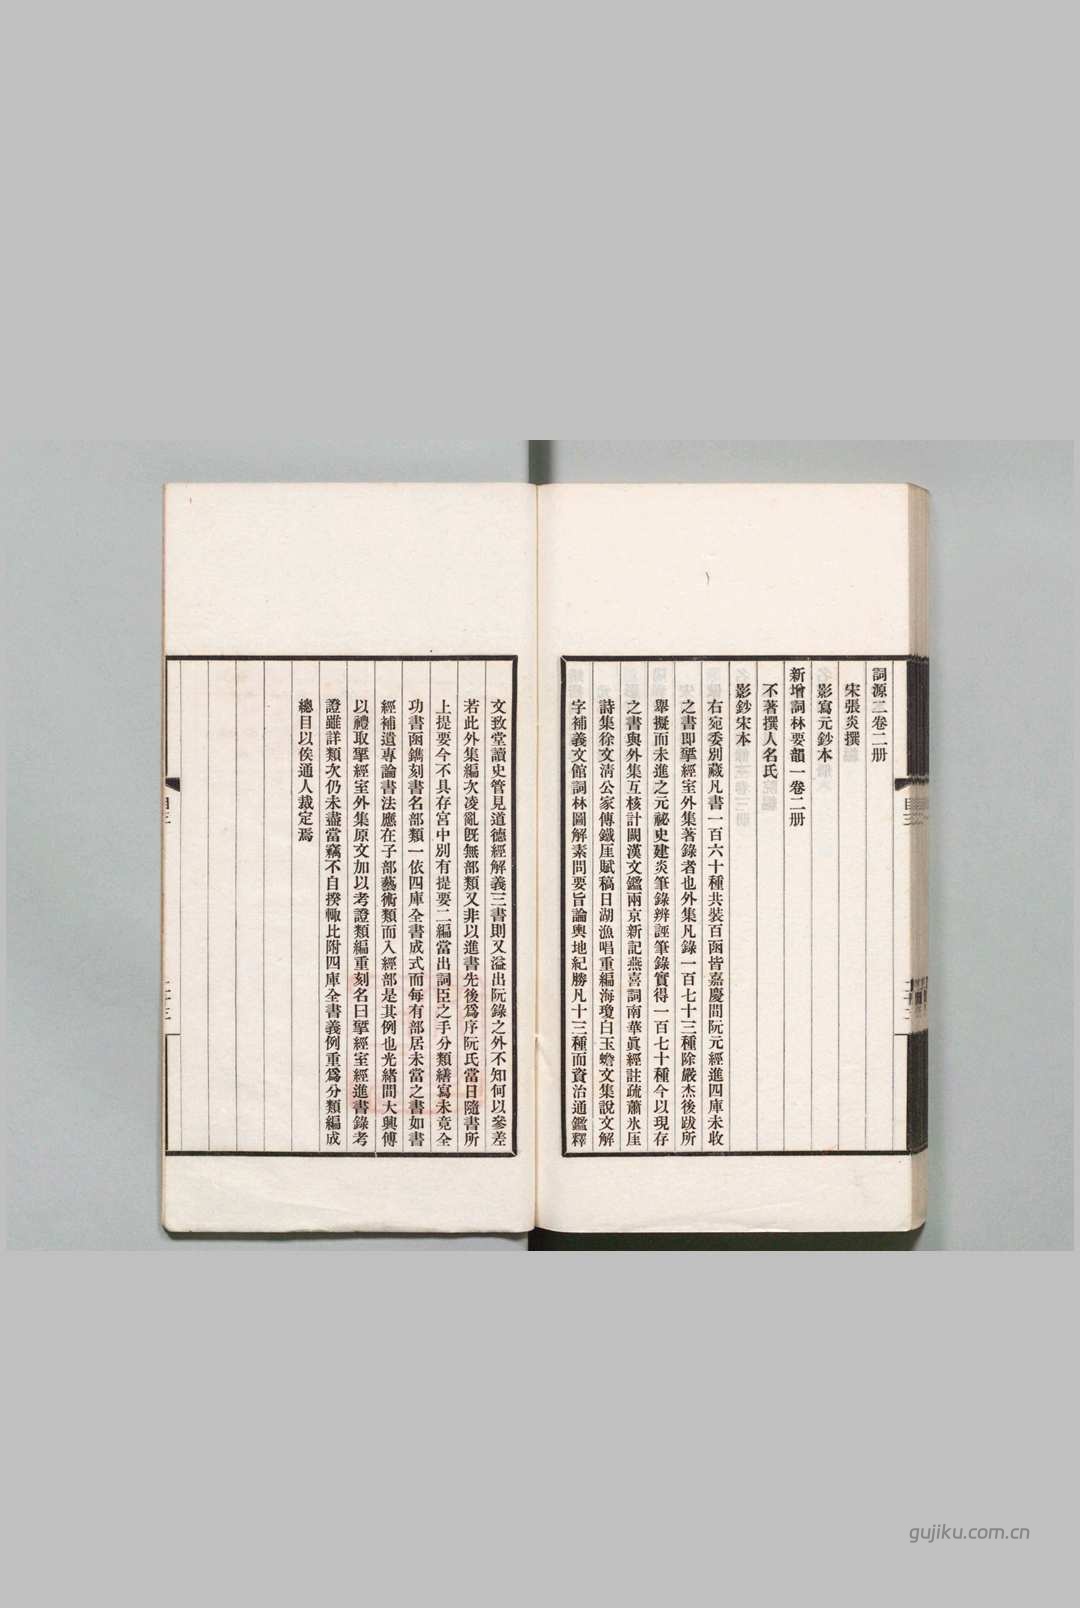 詞源二卷二册
宋張炎撰
影寫元鈔本
新增詞林要韻一卷二册
不著撰人名氏
影鈔宋本
右宛委別藏凡書一百六十種共裝百函皆嘉慶間阮元經進四庫未收
之書即揅經室外集著錄者也外集凡錄一百七十三種除嚴杰後跋所
舉擬而未進之元祕史建炎筆錄辨誣筆錄實得一百七十種今以現存
之書與外集互核計闕漢文鑑兩京新記燕喜詞南華眞經註疏蕭氷厓
詩集徐文淸公家傳鐵厓賦稿日湖漁唱重編海瓊白玉蟾文集說文解
字補義文館詞林圖解素問要旨論輿地紀勝凡十三種而資治通鑑釋
文致堂讀史管見道德經解義三書則又溢出阮錄之外不知何以參差
若此外集編次凌亂旣無部類又非以進書先後爲序阮氏當日隨書所
上提要今不具存宮中別有提要二編當出詞臣之手分類繕寫未竟全
功書函鐫刻書名部類一依四庫全書成式而每有部居未當之書如書
經補遺專論書法應在子部藝術類而入經部是其例也光緒間大興傅
以禮取揅經室外集原文加以考證類編重刻名曰揅經室經進書錄考
證雖詳類次仍未盡當竊不自揆輙比附四庫全書義例重爲分類編成
總目以俟通人裁定焉
目三
二十三
gujiku.com.cn